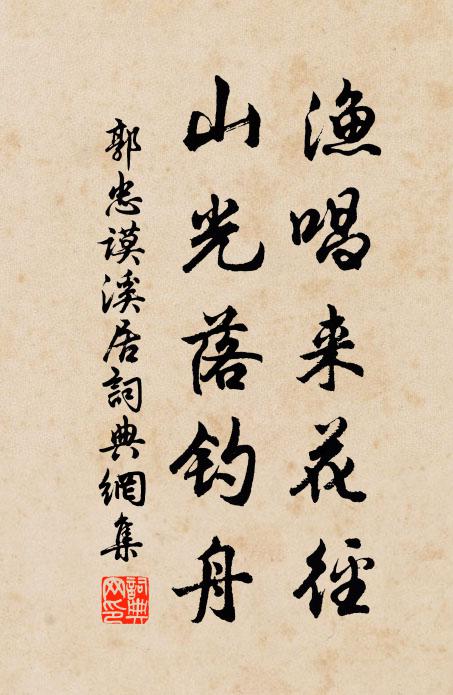 渔唱来花径
山光落钓舟
郭忠谟溪居詞典網集
詞典网印